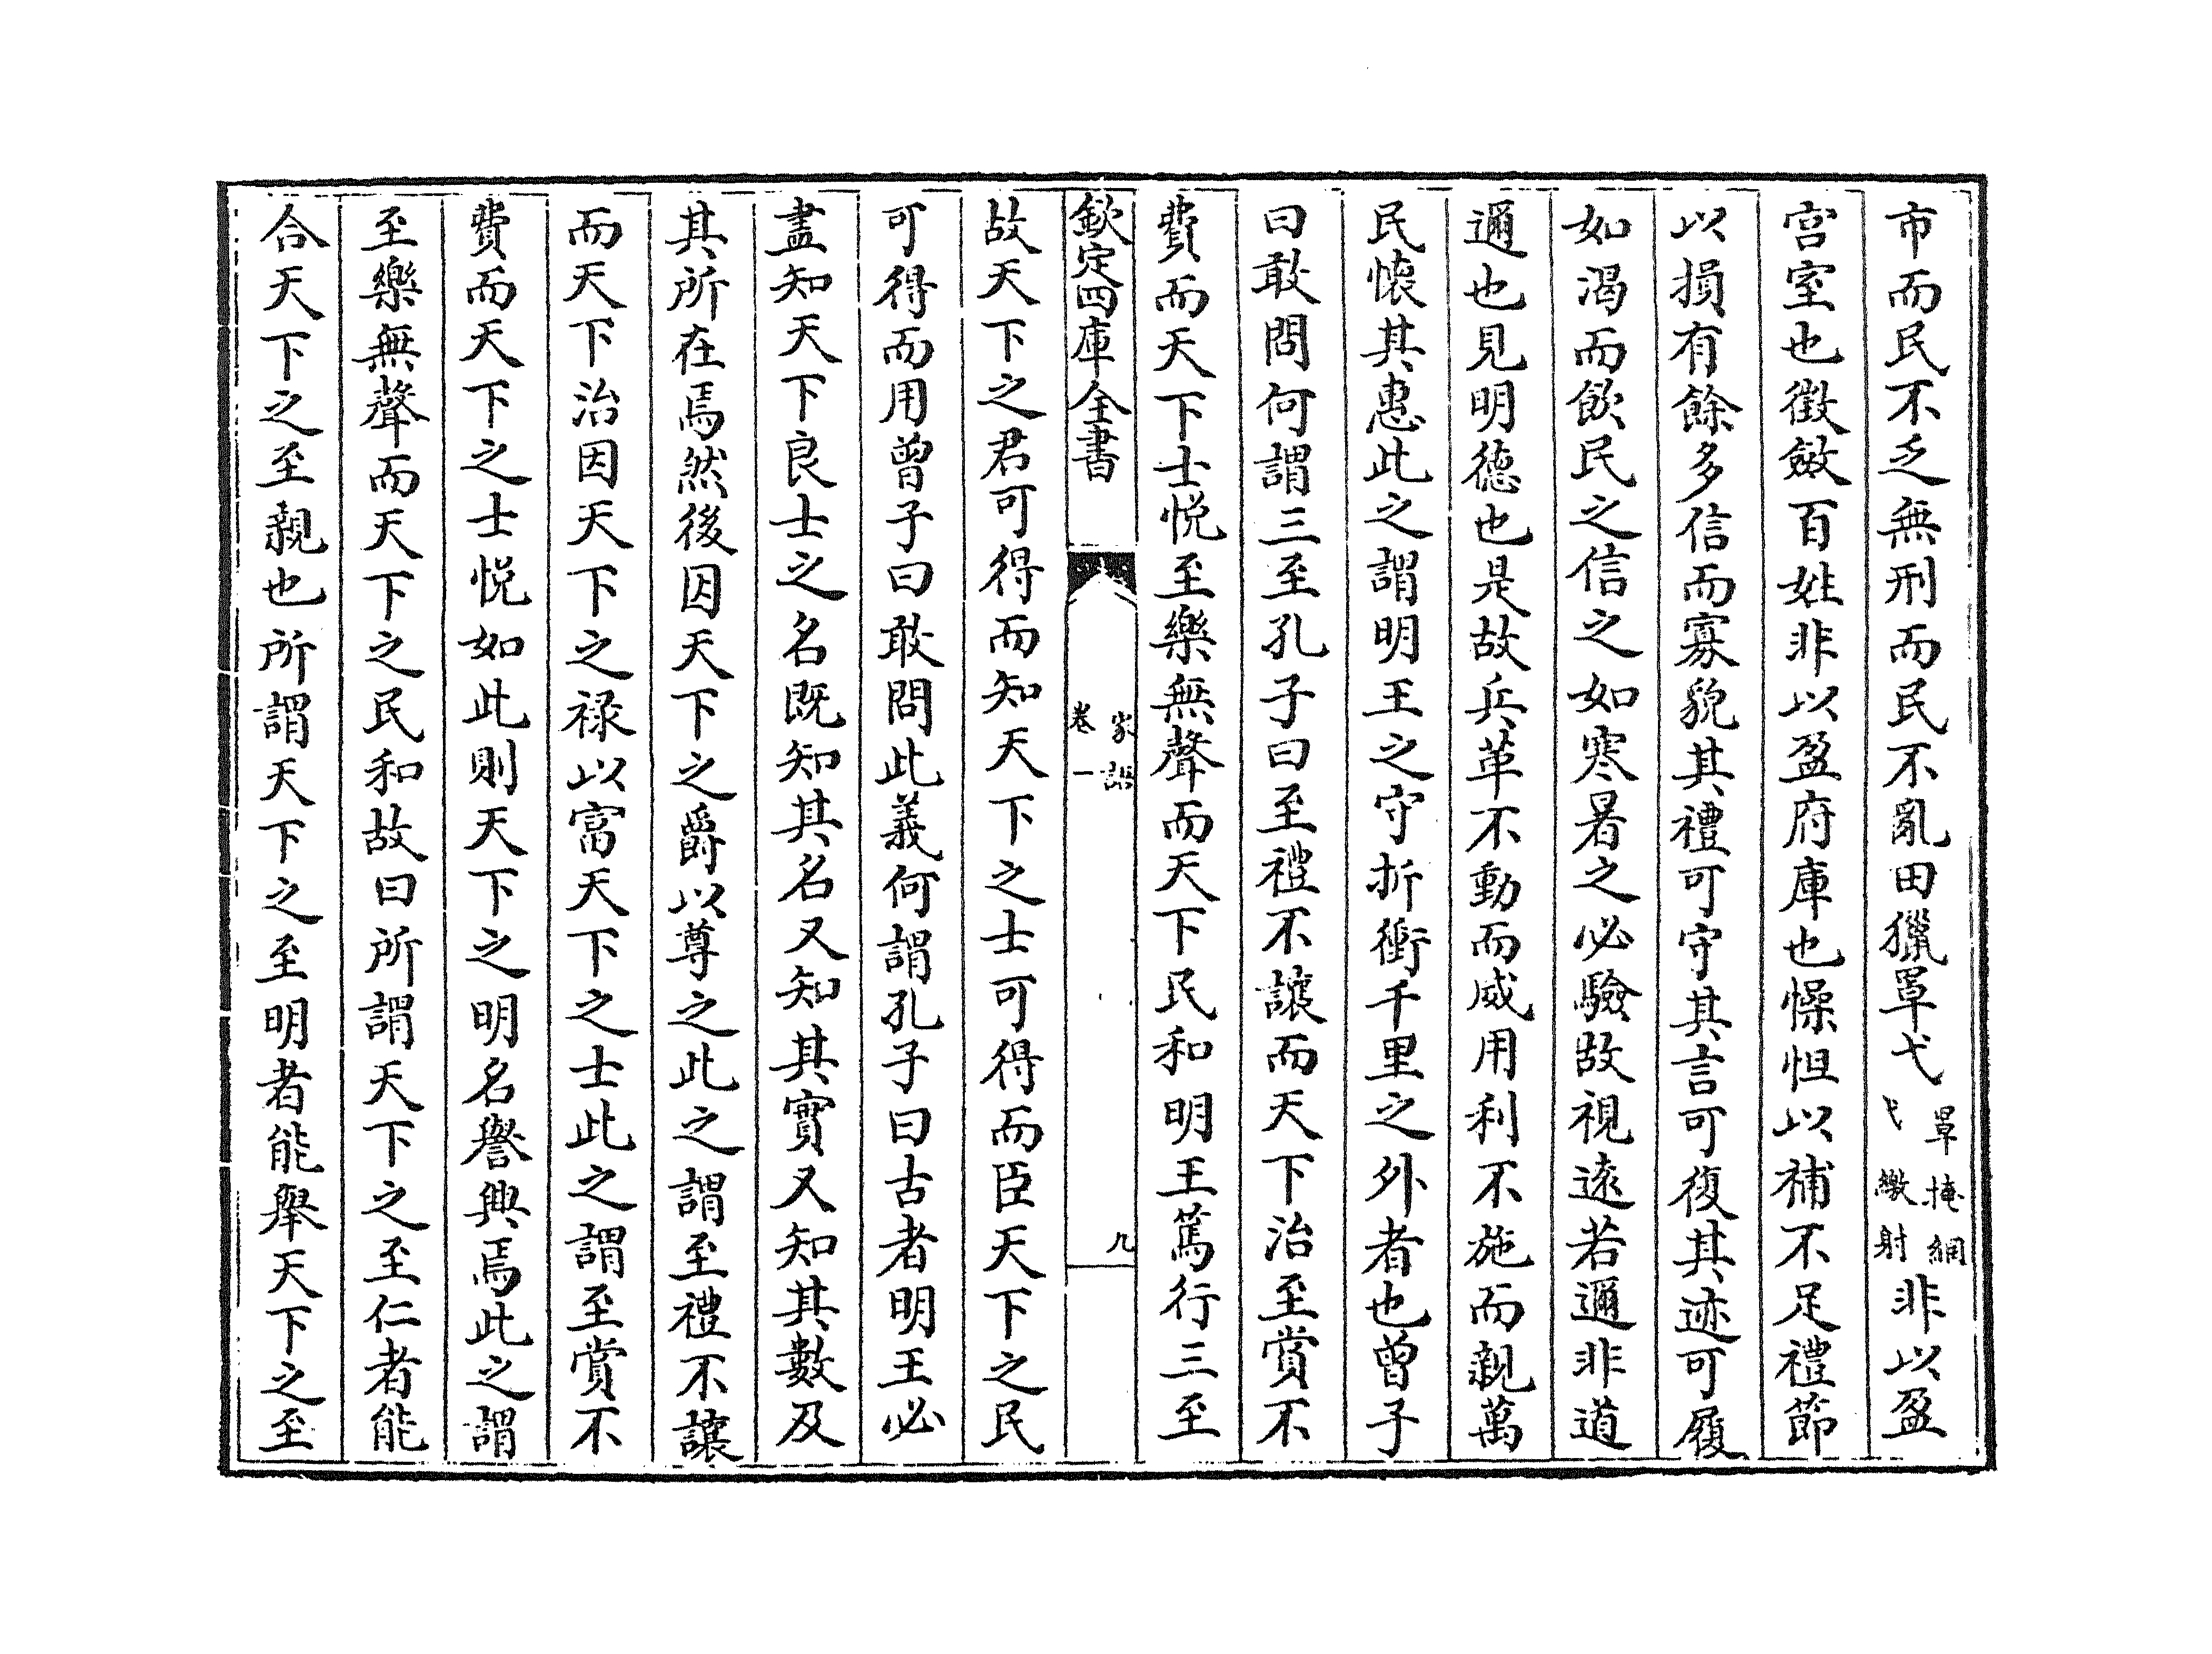 市而民不乏無刑而民不亂田獵罩弋罩掩網弋繳射非以盈
宫室也徴斂百姓非以盈府庫也懆怛以補不足禮節
以損有餘多信而寡貌其禮可守其言可復其迹可履
如渴而飲民之信之如寒暑之必驗故視遠若邇非道
邇也見明徳也是故兵革不動而威用利不施而親萬
民懐其惠此之謂明王之守折衝千里之外者也曾子
曰敢問何謂三至孔子曰至禮不讓而天下治至賞不
費而天下士悦至樂無聲而天下民和明王篤行三至
欽定四庫全書
家語
卷一
九
故天下之君可得而知天下之士可得而臣天下之民
可得而用曾子曰敢問此義何謂孔子曰古者明王必
盡知天下良士之名既知其名又知其實又知其數及
其所在焉然後因天下之爵以尊之此之謂至禮不讓
而天下治因天下之禄以富天下之士此之謂至賞不
費而天下之士悦如此則天下之明名譽興焉此之謂
至樂無聲而天下之民和故曰所謂天下之至仁者能
合天下之至親也所謂天下之至明者能舉天下之至